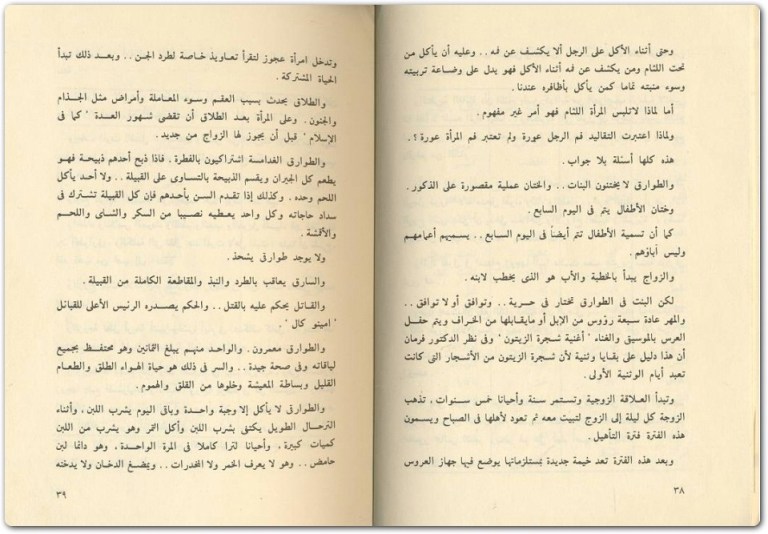 وحتى أثناء الأكل على الرجل ألا يكشف عن فمه . . وعليه أن يأكل من
تحت اللثام ومن يكشف عن فمه أثناء الأكل فهو يدل على وضاعة تربيته
وسوء منبته تماما كمن يأكل بأظافره عندنا .
أما لماذا لاتلبس المرأة اللثام فهو أمر غير مفهوم .
ولماذا اعتبرت التقاليد فم الرجل عورة ولم تعتبر فم المرأة عورة ؟ .
هذه كلها أسئلة بلا جواب .
والطوارق لا يختنون البنات . . والختان عملية مقصورة على الذكور .
وختان الأطفال يتم فى اليوم السابع .
كما أن تسمية الأطفال تتم أيضاً فى اليوم السابع . . يسميهم أعمامهم
وليس آباؤهم .
والزواج يبدأ بالخطبة والأب هو الذى يخطب لابنه .
لكن البنت فى الطوارق تختار فى حرية . . وتوافق أو لا توافق . .
والمهر عادة سبعة رؤوس من الإبل أو مايقابلها من الخراف ويتم حفل
العرس بالموسيقى والغناء " أغنية شجرة الزيتون " وفى نظر الدكتور فرمان
أن هذا دليل على بقايا وثنية لأن شجرة الزيتون من الأشجار التى كانت
تعبد أيام الوثنية الأولى .
وتبدأ العلاقة الزوجية وتستمر سنة وأحيانا خمس سنوات ، تذهب
الزوجة كل ليلة إلى الزوج لتبيت معه ثم تعود لأهلها فى الصباح ويسمون
هذه الفترة فترة التأهيل .
وبعد هذه الفترة تعد خيمة جديدة بمستلزماتها يوضع فيها جهاز العروس
٣٨
وتدخل امرأة عجوز لتقرأ تعاويذ خاصة لطرد الجن . . وبعد ذلك تبدأ
الحياة المشتركة .
والطلاق يحدث بسبب العقم وسوء المعاملة وأمراض مثل الجذام
والجنون . وعلى المرأة بعد الطلاق أن تقضى شهور العدة " كما فى
الإسلام " قبل أن يجوز لها الزواج من جديد .
والطوارق الغدامسة اشتراكيون بالفطرة . فاذا ذبح أحدهم ذبيحة فهو
يطعم كل الجيران ويقسم الذبيحة بالتساوى على القبيلة . . ولا أحد يأكل
اللحم وحده . وكذلك إذا تقدم السن بأحدهم فإن كل القبيلة تشترك فى
سداد حاجاته وكل واحد يعطيه نصيبا من السكر والشاى واللحم
والأقشة .
ولا يوجد طوارق يشحذ .
والسارق يعاقب بالطرد والنبذ والمقاطعة الكاملة من القبيلة .
والقاتل يحكم عليه بالقتل . . والحكم يصدره الرئيس الأعلى للقبائل
" امينو كال " .
والطوارق معمرون . والواحد منهم يبلغ الثمانين وهو محتفظ بجميع
لياقاته وفى صحة جيدة . والسر فى ذلك هو حياة الهواء الطلق والطعام
القليل وبساطة المعيشة وخلوها من القلق والهموم .
والطوارق لا يأكل إلا وجبة واحدة وباقى اليوم يشرب اللبن ، وأثناء
الترحال الطويل يكتفى بشرب اللبن وأكل التمر وهو يشرب من اللبن
كميات كبيرة ، وأحيانا لترا كاملا فى المرة الواحدة ، وهو دائما لبن
حامض . . وهو لا يعرف الخمر ولا المخدرات . . ويمضغ الدخان ولا يدخنه
٣٩